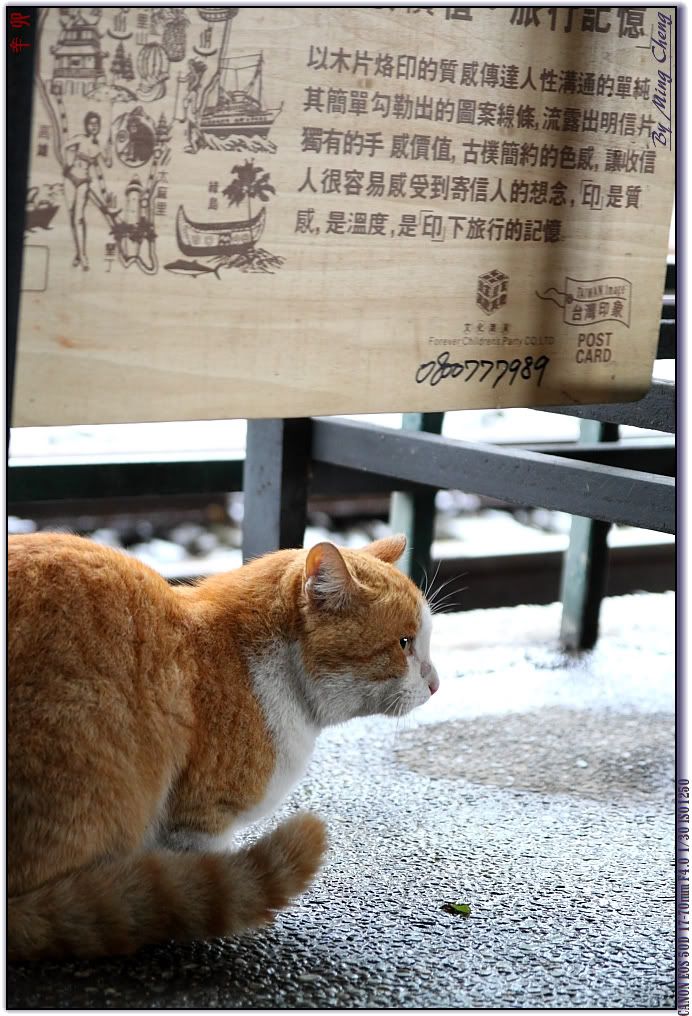 旅行記憶
以木片烙印的質感傳達人性溝通的單純
其簡單勾勒出的圖案線條, 流露出明信片
獨有的手感價值, 古樸簡約的色感, 讓收信
人很容易感受到寄信人的想念,「印」是質
感, 是溫度, 是「印」下旅行的記憶
高雄
太麻里
綠島
墾丁
Forever Children's Party CO.LTD
TAIWAN Image
台灣印象
POST
CARD
0800777989
辛卯
By Ming Cheng
CANON EOS 50D 17-70mm F4.0 1/30 ISO1250